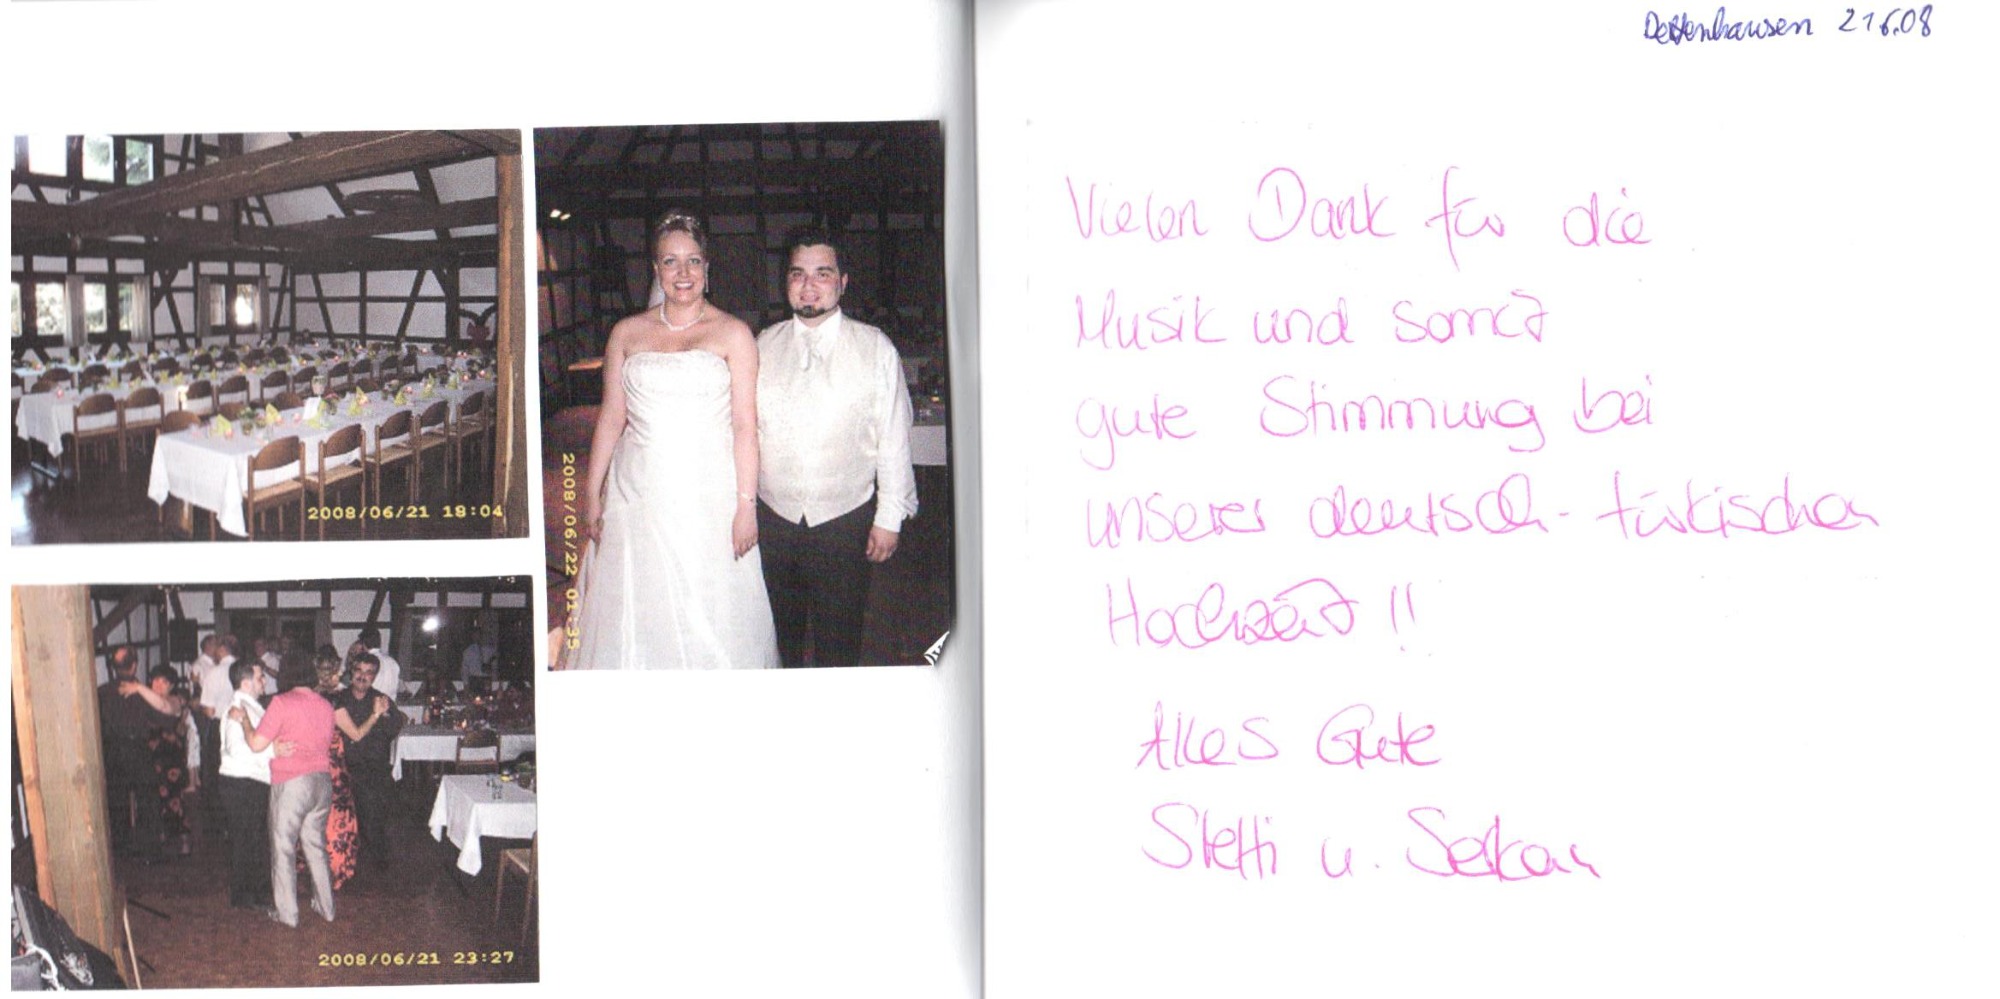 Dettenhausen 21.6.08
2008/06/21 18:04
2008/06/22 01:35
2008/06/21 23:27
Vielen Dank für die
Musik und somit
gute Stimmung bei
unserer deutsch-türkischen
Hochzeit !!
Alles Gute
Steffi u. Serkan